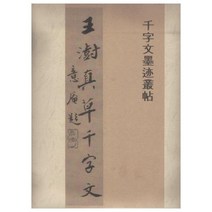 千字文墨迹叢帖
王澍真草千字文
意盦題